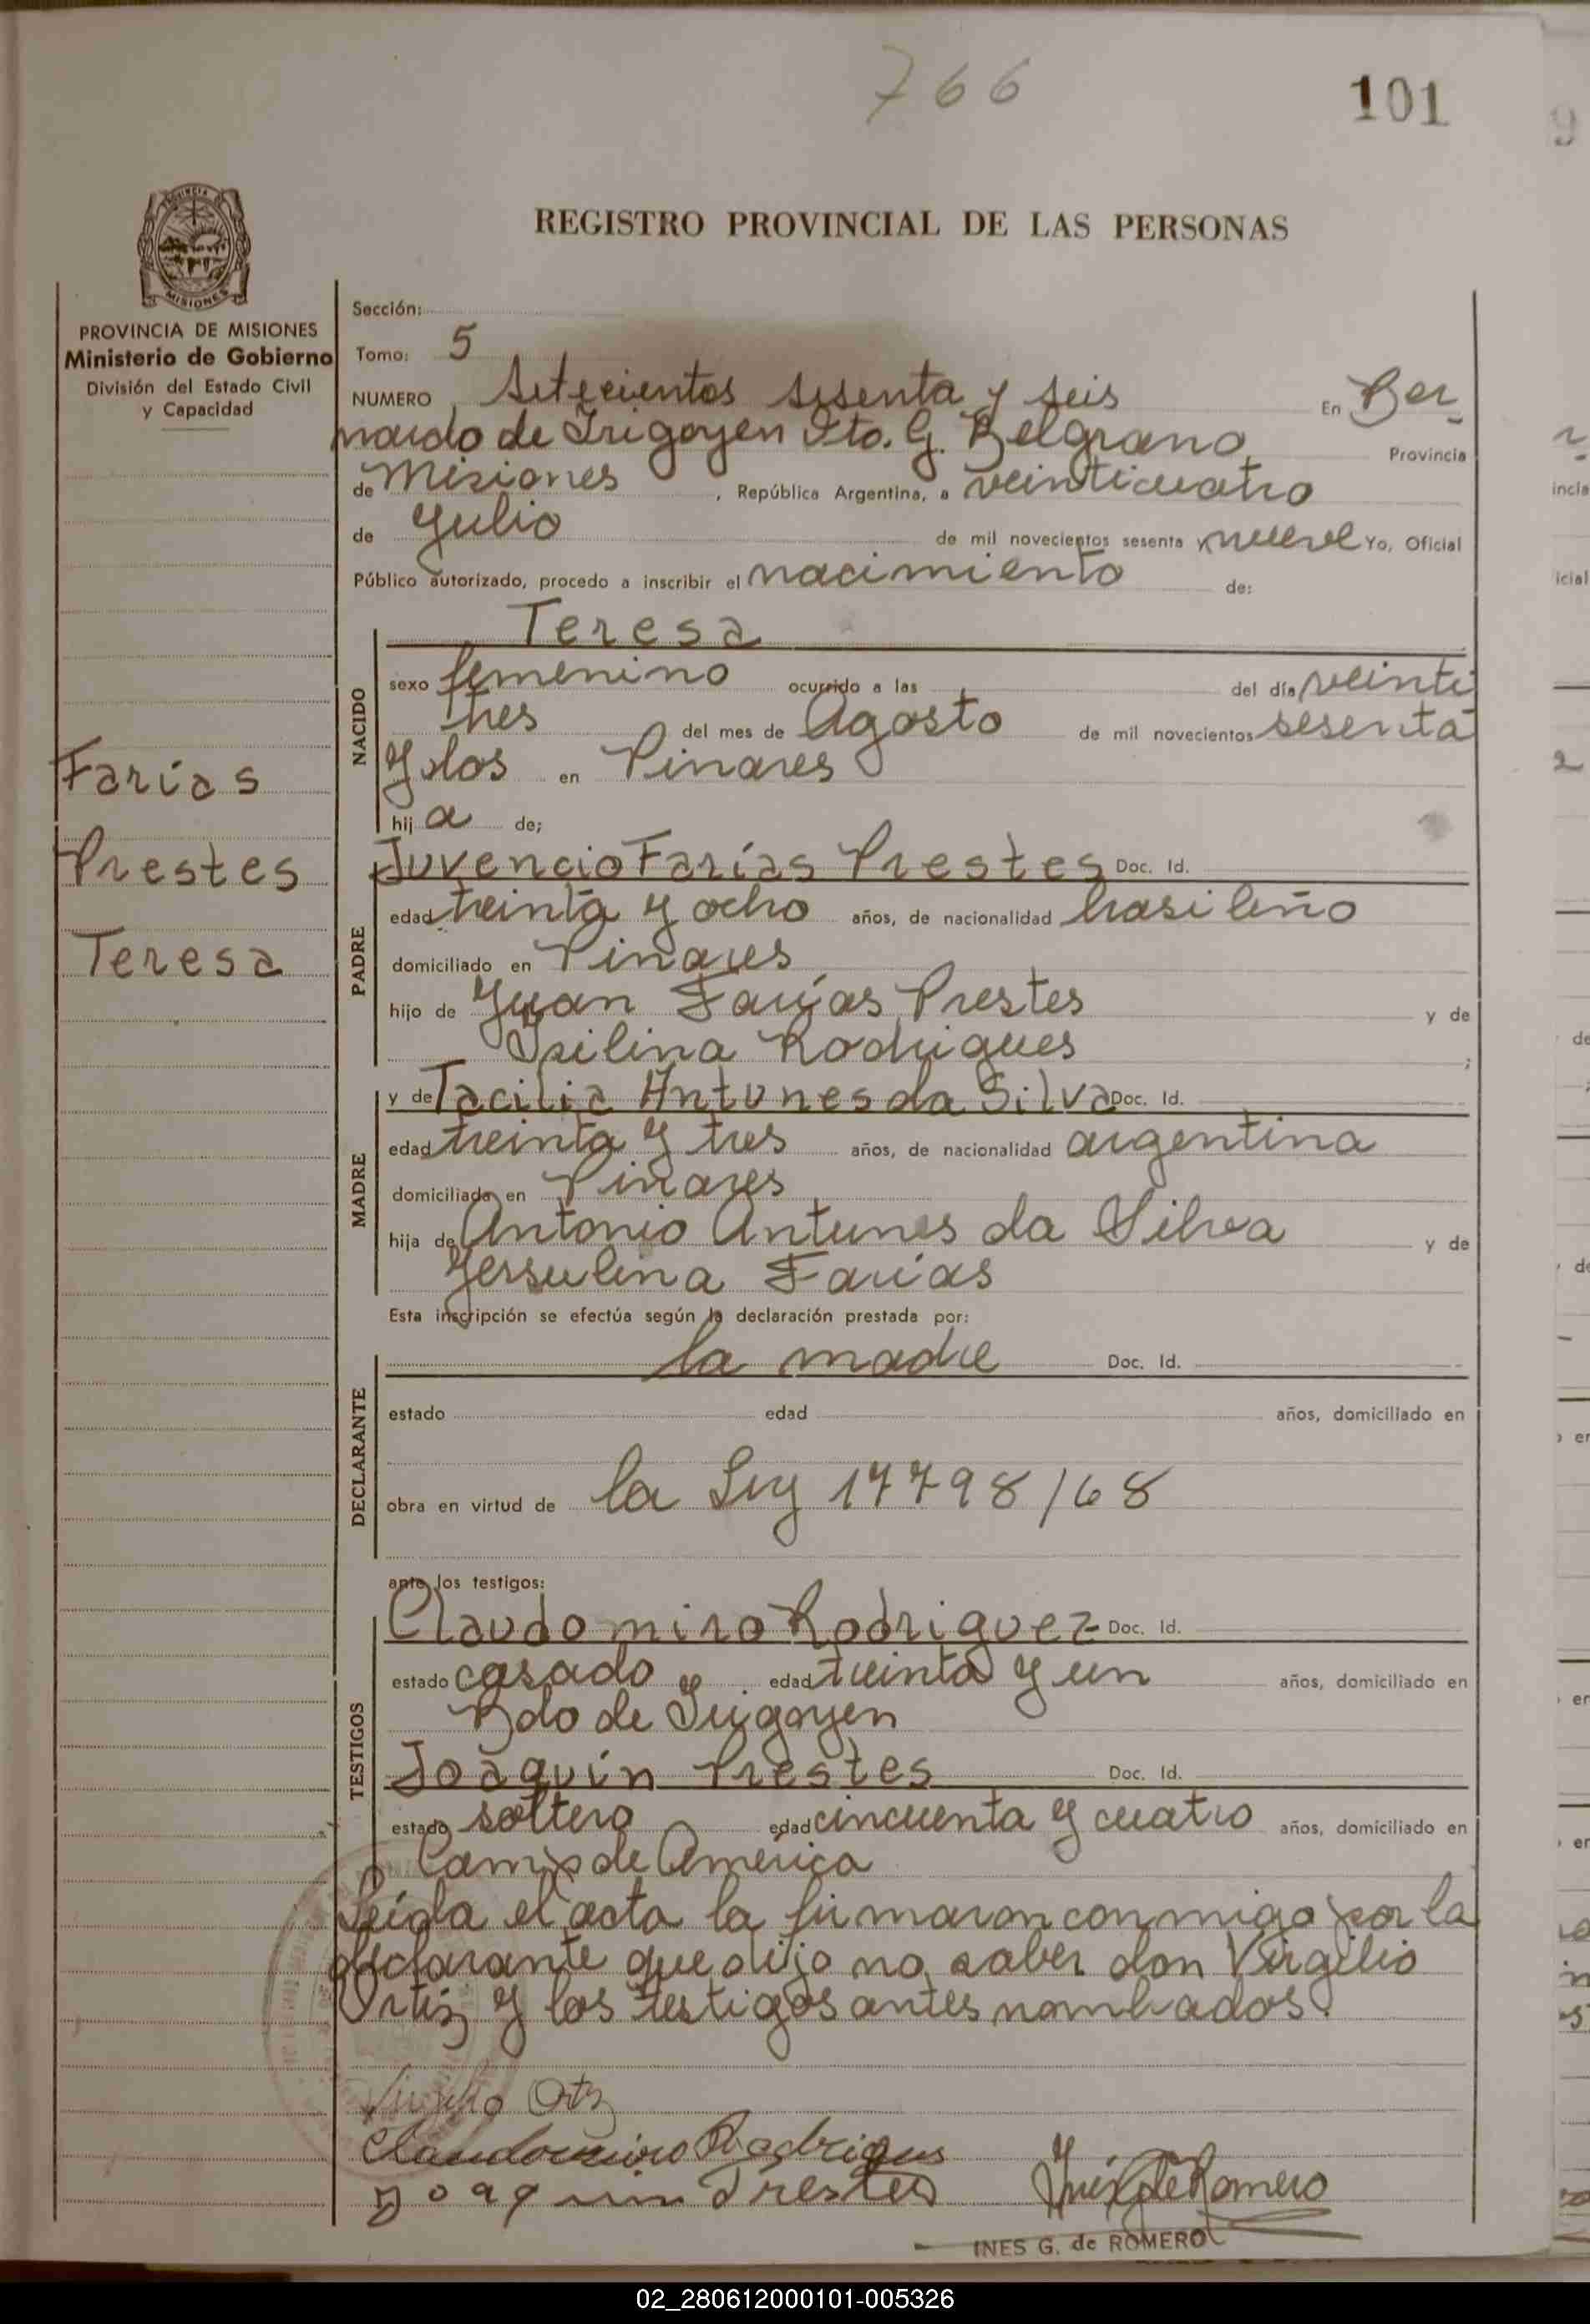 766
101
REGISTRO PROVINCIAL DE LAS PERSONAS
PROVINCIA DE MISIONES
Ministerio de Gobierno
División del Estado Civil
y Capacidad
Farías
Prestes
Teresa
Sección:
Tomo: 5
NUMERO Setecientos sesenta y seis En Ber
nardo de Irigoyen Dto. G. Belgrano Provincia
de Misiones, República Argentina, a veinticuatro
de Julio de mil novecientos sesenta y nueve Yo, Oficial
Público autorizado, procedo a inscribir el nacimiento de:
NACIDO
Teresa
sexo femenino ocurrido a las del día veinti
tres del mes de Agosto de mil novecientos sesenta
y dos en Pinares
hija de;
PADRE
Juvencio Farías Prestes Doc. Id.
edad treinta y ocho años, de nacionalidad brasileño
domiciliado en Pinares
hijo de Juan Farías Prestes y de
Isilina Rodrigues ;
MADRE
y de Tacilia Antunes da Silva Doc. Id.
edad treinta y tres años, de nacionalidad argentina
domiciliada en Pinares
hija de Antonio Antunes da Silva y de
Jersulina Farías
Esta inscripción se efectúa según la declaración prestada por:
DECLARANTE
la madre Doc. Id.
estado edad años, domiciliado en
obra en virtud de la Ley 17798/68
ante los testigos:
TESTIGOS
Claudomiro Rodriguez Doc. Id.
estado casado edad treinta y un años, domiciliado en
Bdo de Irigoyen
Joaquín Prestes Doc. Id.
estado soltero edad cincuenta y cuatro años, domiciliado en
Camp de América
Leída el acta la firmaron conmigo por la
declarante que dijo no saber don Virgilio
Ortiz y los testigos antes nombrados.
Virgilio Ortiz
Claudomiro Rodrigues
Joaquim Prestes
Inés G de Romero
INES G. de ROMERO
02_280612000101-005326